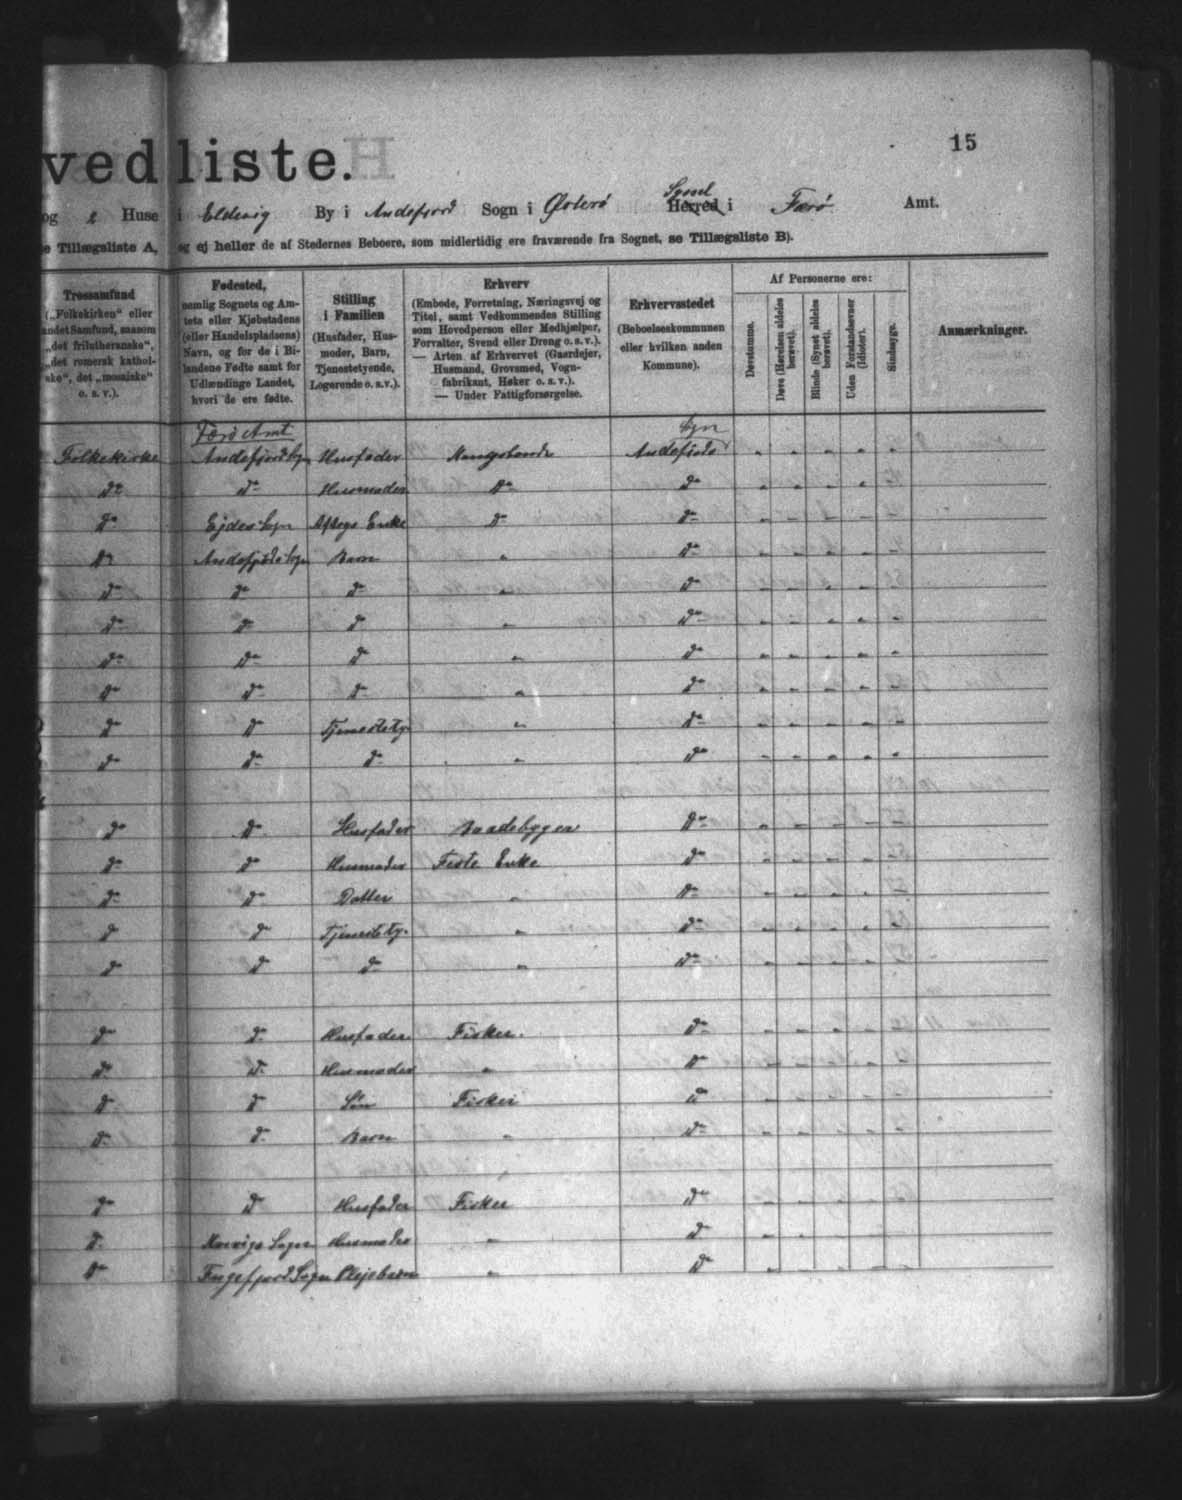 15
vedliste.
og 2 Huse i Eldevig By i Andefjord Sogn i Østerø Syssel Herred i Færø Amt.
e Tillægsliste A, og ej heller de af Stedernes Beboere, som midlertidig ere fraværende fra Sognet, se Tillægsliste B).
Trossamfund
(„Folkekirken“ eller
andet Samfund, saasom
„det frilutheranske“,
„det romersk kathol-
ske“, det „mosaiske“
o. s. v.).
Fødested,
nemlig Sognets og Am-
tets eller Kjøbstadens
(eller Handelspladsens)
Navn, og for de i Bi-
landene Fødte samt for
Udlændinge Landet,
hvori de ere fødte.
Stilling
i Familien
(Husfader, Hus-
moder, Barn,
Tjenestetyende,
Logerende o. s. v.).
Erhverv
(Embede, Forretning, Næringsvej og
Titel, samt Vedkommendes Stilling
som Hovedperson eller Medhjælper,
Forvalter, Svend eller Dreng o. s. v.).
— Arten af Erhvervet (Gaardejer,
Husmand, Grovsmed, Vogn-
fabrikant, Høker o. s. v.).
— Under Fattigforsørgelse.
Erhvervsstedet
(Beboelseskommunen
eller hvilken anden
Kommune).
Af Personerne ere:
Døvstumme.
Døve (Hørelsen aldeles
berøvet).
Blinde (Synet aldeles
berøvet).
Uden Forstandsevner
(Idioter).
Sindssyge.
Anmærkninger.
Færø Amt
Folkekirke Andefjord Husfader Andefjords
do do Husmoder do do
do Ejde Enke do do
do Andefjords Barn " do
do do do " do
do do do " do
do do do " do
do do do " do
do do Tjenestety. " do
do do do " do
do do Husfader Baadebygger do
do do Husmoder Feste Enke do
do do Datter " do
do do Tjenestety. " do
do do do " do
do do Husfader Fisker. do
do do Husmoder " do
do do Søn Fisker do
do do Barn " do
do do Husfader Fisker do
do Sogn Husmoder " do
do Fuglefjord Sogn Plejebarn " do